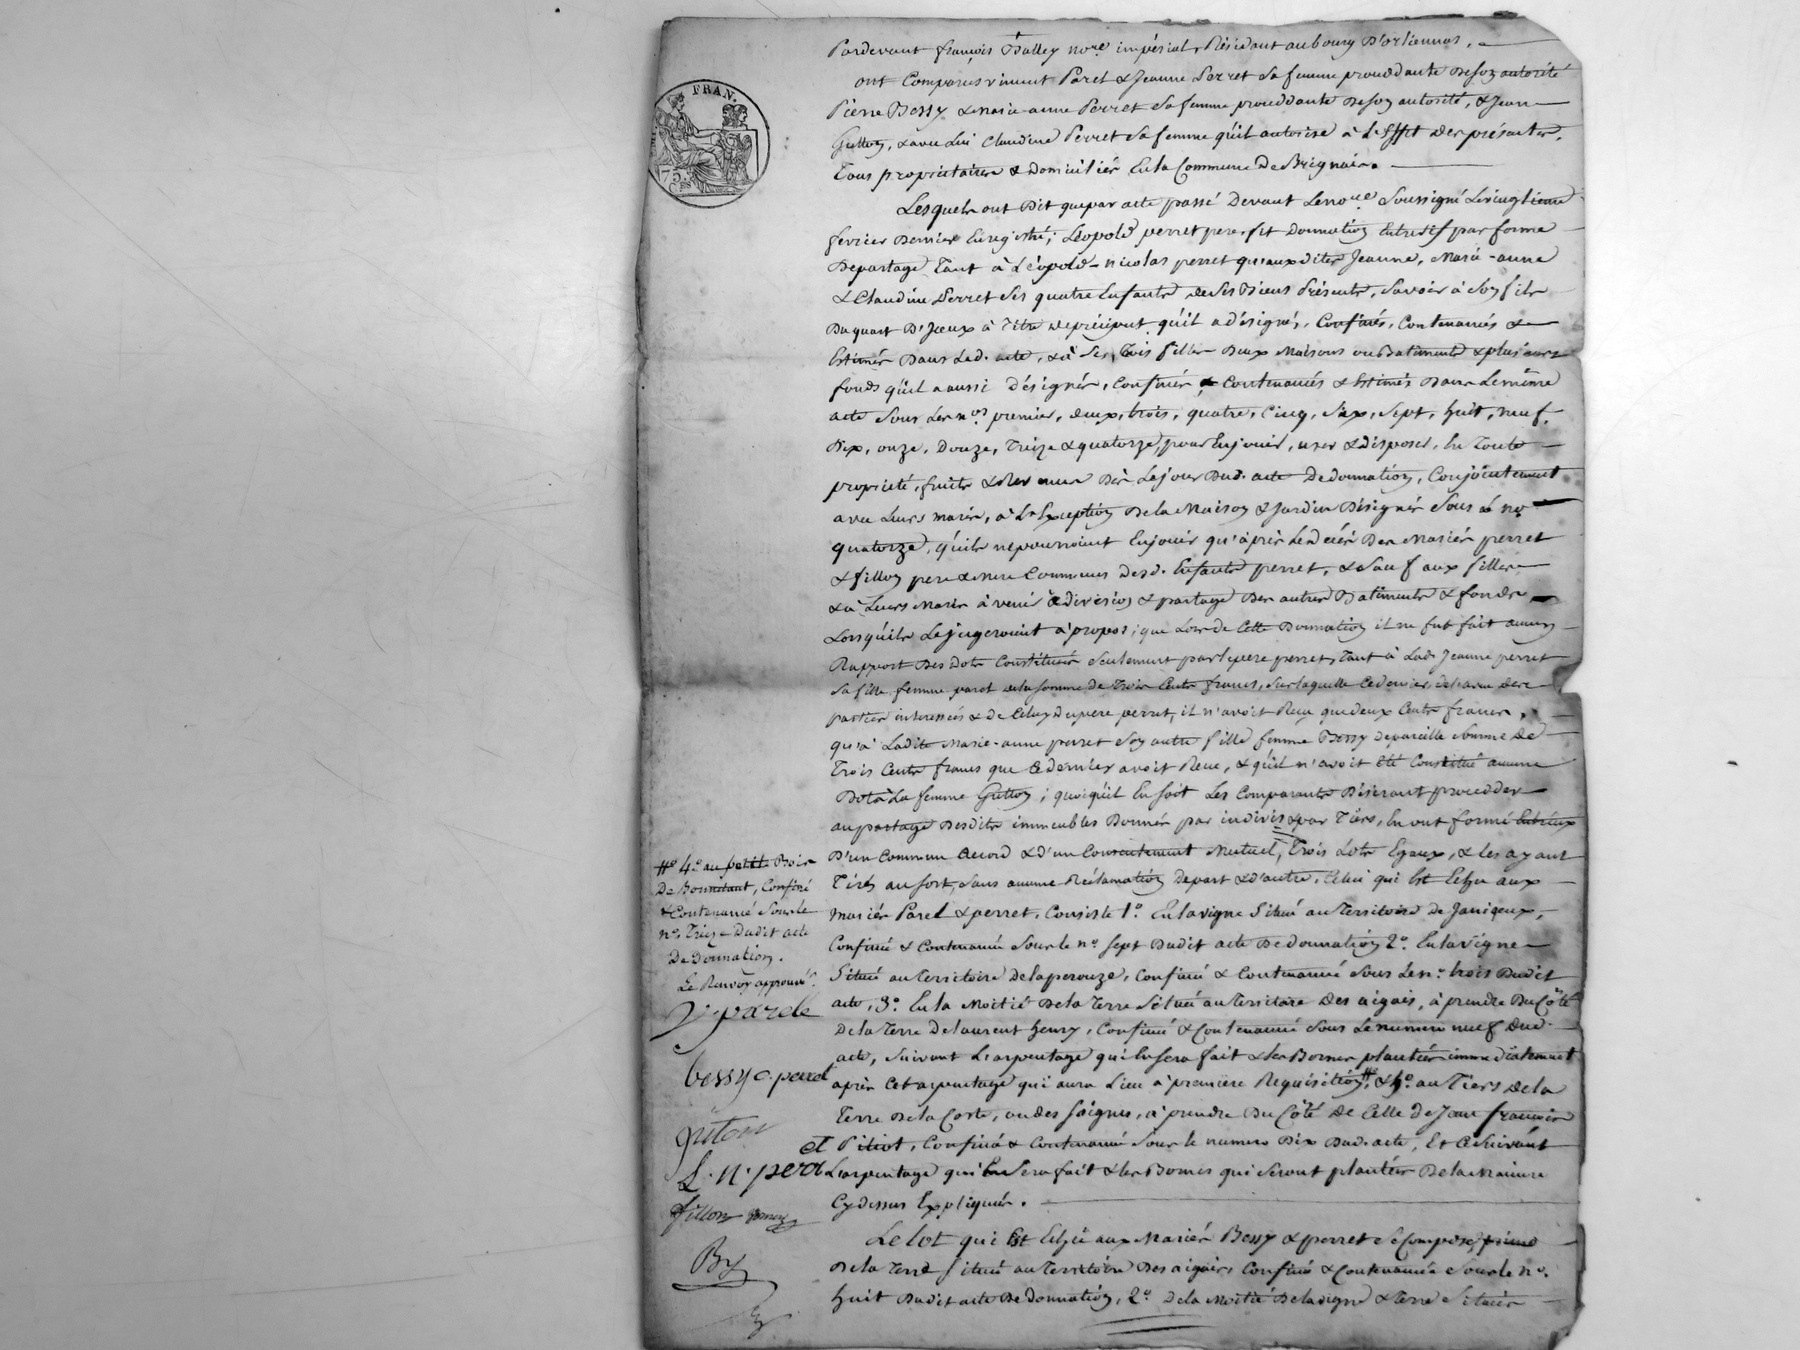 Pardevant françois Balley no.re impérial, Résidant au bourg D'orliennas,
ont Comparus vincent Parel & Jeanne Perret Sa femme proceddante De son autorité
Pierre Bessy & marie-anne Perret Sa femme proceddante De son autorité, & Jean
Guttoy, & avec Lui Claudine Perret Sa femme qu'il autorise à L'effet des présentes,
Tous propriétaires & Domiciliés En la Commune De Brignais.
FRAN.
75.
C.ES
Lesquels ont Dit que par acte passé Devant Le no.re Soussigné Le vingt
fevrier Dernier Enregistré, Léopold perret pere fit Donnation Entrevif par forme
De partage Tant à Léopold-nicolas perret qu'aux dites Jeanne, Marie-anne
& Claudine Perret Ses quatre Enfants, de Ses Biens Présents, Savoir à Son fils
Du quart D'Iceux à Titre de préciput qu'il a désignés, Confinés, Contenancés &
Estimés Dans Lad. acte, & à Ses Trois filles Deux Maisons ou Batiments & plusieurs
fonds qu'il a aussi Désignés, Confinés & Contenancés & Estimés Dans Le même
acte Sous Les n.os premier, deux, trois, quatre, Cinq, Six, Sept, huit, neuf,
Dix, onze, Douze, Treize & quatorze, pour En jouir, user & disposer, En Toute
propriété, fruits & Revenus Dès Le jour Dud. acte De donnation, Conjointement
avec Leurs maris, à L'Exception De la Maison & Jardin Désignés Sous le no.
quatorze, qu'ils ne pourroient En jouir qu'après Le décès Des Mariés perret
& fillon pere & Mere Communs Desd. Enfants perret, & Sauf aux filles
& à Leurs Maris à venir à division & partage Des autres Batiments & fonds
Lorsqu'ils Le jugeroient à propos; que Lors de Cette Donnation il ne fut fait aucun
Rapport Des Dots Constituées Seulement par Le pere perret, Tant à Lad. Jeanne perret
Sa fille femme parel de la Somme de Trois Cents francs, Sur laquelle Ce dernier, de l'aveu des
parties interressées & de Celuy Du pere perret, il n'avoit Reçu que deux Cents francs,
qu'à Ladite Marie-anne perret Son autre fille femme Bessy De pareille Somme De
Trois Cents francs que Ce dernier avoit Reçue, & qu'il n'avoit Été Constitué aucune
Dot à La femme Guttoy; quoiqu'il En soit Les Comparants Désirant procedder
au partage Desdits immeubles Donnés par indivis & par Tiers, En ont formé
D'un Commun Accord & d'un Consentement Mutuel, Trois Lots Egaux, & les ayant
Tirés au sort, Sans aucune Réclamation De part & d'autre, Celui qui Est Echu aux
mariés Parel & perret, Consiste 1.º En la vigne Située au Territoire de Janigeux,
Confinée & Contenancée Sous le n.º Sept Dudit acte De donnation 2.º En la vigne
Située au Territoire de la perouze, Confinée & Contenancée Sous Le n.º trois Dudit
acte, 3.º En la Moitié De la Terre Située au Territoire Des aigais, à prendre Du Côté
De la Terre De laurent henry, Confinée & Contenancée Sous Le numero neuf dud.
acte, Suivant L'arpentage qui En sera fait & Les Bornes plantées immédiatement
après Cet arpentage qui aura Lieu à première Requisition, # & 5.º au Tiers de la
Terre De la Coste, ou des Soignes, à prendre Du Côté De Celle de Jean françois
Pitiot, Confinée & Contenancée Sous le numero Dix Dud. acte, Et Ce Suivant
L'arpentage qui En Sera fait & Les Bornes qui Seront plantées De la Maniere
Cy dessus Expliquée.
Le Lot qui Est Echu aux Mariés Bessy & perret Se Compose
De la Terre Située au Territoire Des aigais, Confinée & Contenancée Sous le no.
huit Dudit acte De donnation, 2.º De la Moitié De la vigne & terre Situées
# 4.º au petit Bois
De Bonnetant, Confiné
& Contenancé Sous le
n.º Treize Dudit acte
De Donnation.
Le Renvoy approuvé.
V parel
bessy c. perret
guton
L. N. perret
fillon
By